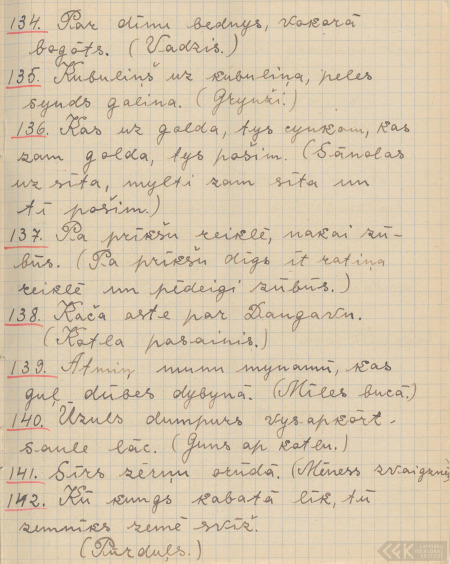 134. Par dīnu bednys, vokorā
bogōts. (Vadzis.)
135. Kubuliņš uz kubuliņa, peles
synds galiņa. (Grynži.)
136. Kas uz golda, tys cynkom, kas
zam golda, tys pošim. (Sānolas
uz sīta, mylti zam sīta un
tī pošim.)
137. Pa prīkšu reiklē, nakai zū-
būs. (Pa prīkšu dīgs īt ratiņa
reiklē un pēdeigi zūbūs.)
138. Kača aste par Daugavu.
(Kotla pasainis.)
139. Atmiņ munu mynamū, kas
guļ dūbes dybynā. (Mīles bucā.)
140. Ūzuls dumpurs vysapkōrt-
saule lāc. (Guns ap kotlu.)
141. Sīrs zērņu orūdā. (Mēness zvaigznēs
142. Kū kungs kabatā līk, tū
zemnīks zemē svīž.
(Purduļs.)